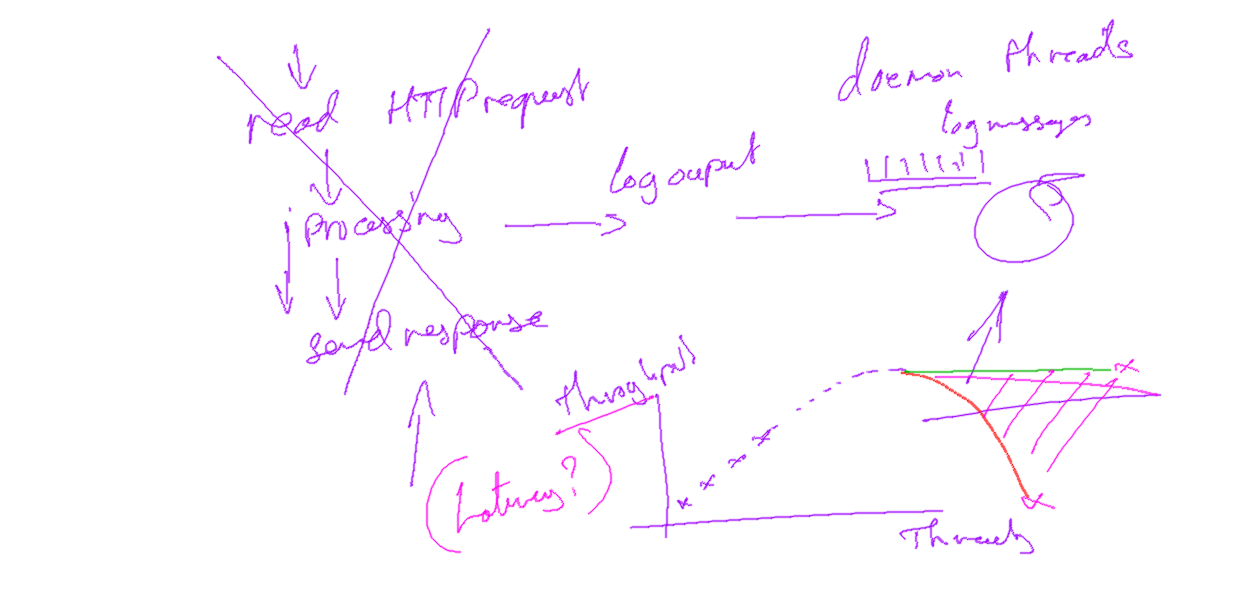 read HTTP request
processing
send response
log ouput
daemon threads
log messages
throughput
(Latency?)
Threads